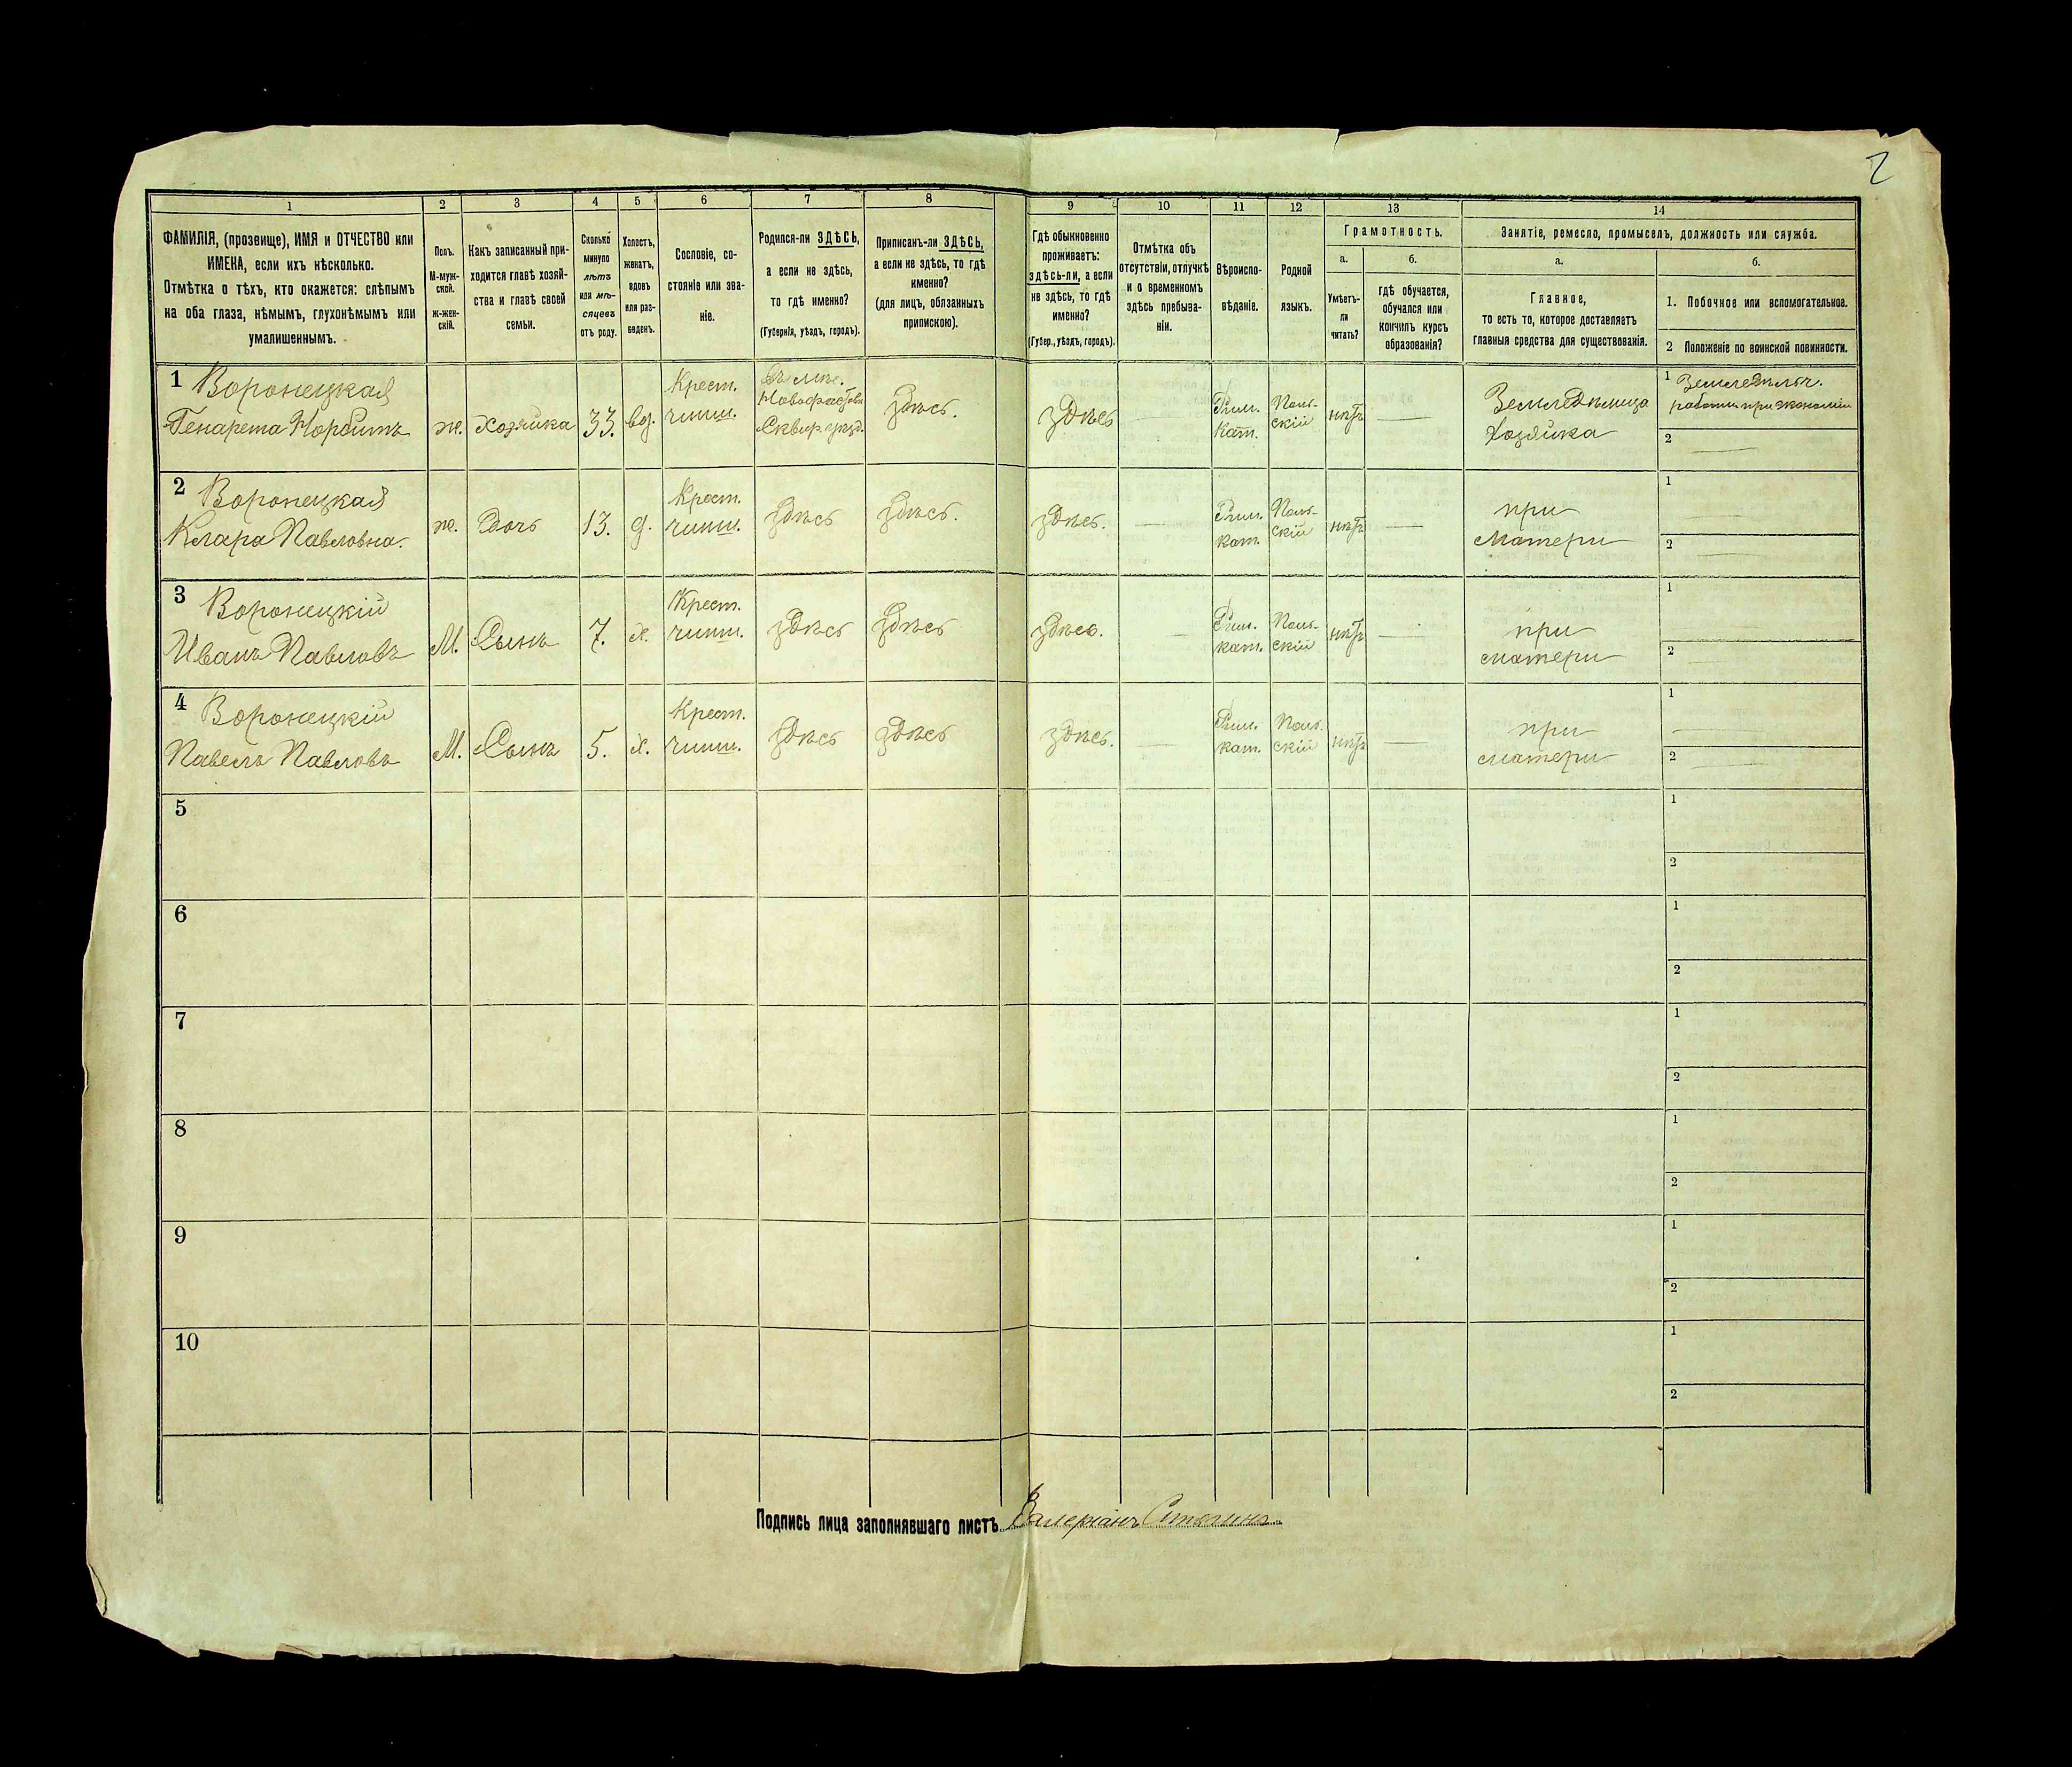 2
1 2 3 4 5 6 7 8 9 10 11 12 13 14
ФАМИЛІЯ, (прозвище), ИМЯ и ОТЧЕСТВО или
ИМЕНА, если ихъ нѣсколько.
Отмѣтка о тѣхъ, кто окажется: слѣпымъ
на оба глаза, нѣмымъ, глухонѣмымъ или
умалишеннымъ.
Полъ.
М-муж-
ской.
ж-жен-
скій.
Какъ записанный при-
ходится главѣ хозяй-
ства и главѣ своей
семьи.
Сколько
минуло
лѣтъ
или мѣ-
сяцевъ
отъ роду.
Холостъ,
женатъ,
вдовъ
или раз-
веденъ.
Сословіе, со-
стояніе или зва-
ніе.
Родился-ли ЗДѢСЬ,
а если не здѣсь,
то гдѣ именно?
(Губернія, уѣздъ, городъ).
Приписанъ-ли ЗДѢСЬ,
а если не здѣсь, то гдѣ
именно?
(для лицъ, обязанныхъ
припискою).
Гдѣ обыкновенно
проживаетъ:
здѣсь-ли, а если
не здѣсь, то гдѣ
именно?
(Губер., уѣздъ, городъ).
Отмѣтка объ
отсутствіи, отлучкѣ
и о временномъ
здѣсь пребыва-
ніи.
Вѣроиспо-
вѣданіе.
Родной
языкъ.
Грамотность.
а.
Умѣетъ-
ли
читать?
б.
гдѣ обучается,
обучался или
кончилъ курсъ
образованія?
Занятіе, ремесло, промыселъ, должность или служба.
а.
Главное,
то есть то, которое доставляетъ
главныя средства для существованія.
б.
1. Побочное или вспомогательное.
2 Положеніе по воинской повинности.
1 Воронецкая
ж. хозяйка 33.
Крест.
чинш.
Сквир. уѣзд.
здѣсь.
здѣсь
Рим.
Кат.
Поль-
скій
нѣтъ
Земледѣлица
Хозяйка
1
2
2 Воронецкая
Клара Павловна.
ж. дочь 13. д.
Крест.
чинш.
здѣсь
здѣсь.
здѣсь.
Рим.
кат.
Поль-
скій
нѣтъ
при
матери
1
2
3 Воронецкій
Иванъ Павловъ
М. Сынъ 7. х.
Крест.
чинш.
здѣсь
здѣсь
здѣсь.
Рим.
кат.
Поль-
скій
нѣтъ
при
матери
1
2
4 Воронецкій
Павелъ Павловъ
М. Сынъ 5. х.
Крест.
чинш.
здѣсь
здѣсь
здѣсь.
Рим.
кат.
Поль-
скій
нѣтъ
при
матери
1
2
5
1
2
6
1
2
7
1
2
8
1
2
9
1
2
10
1
2
Подпись лица заполнявшаго листъ Валеріанъ